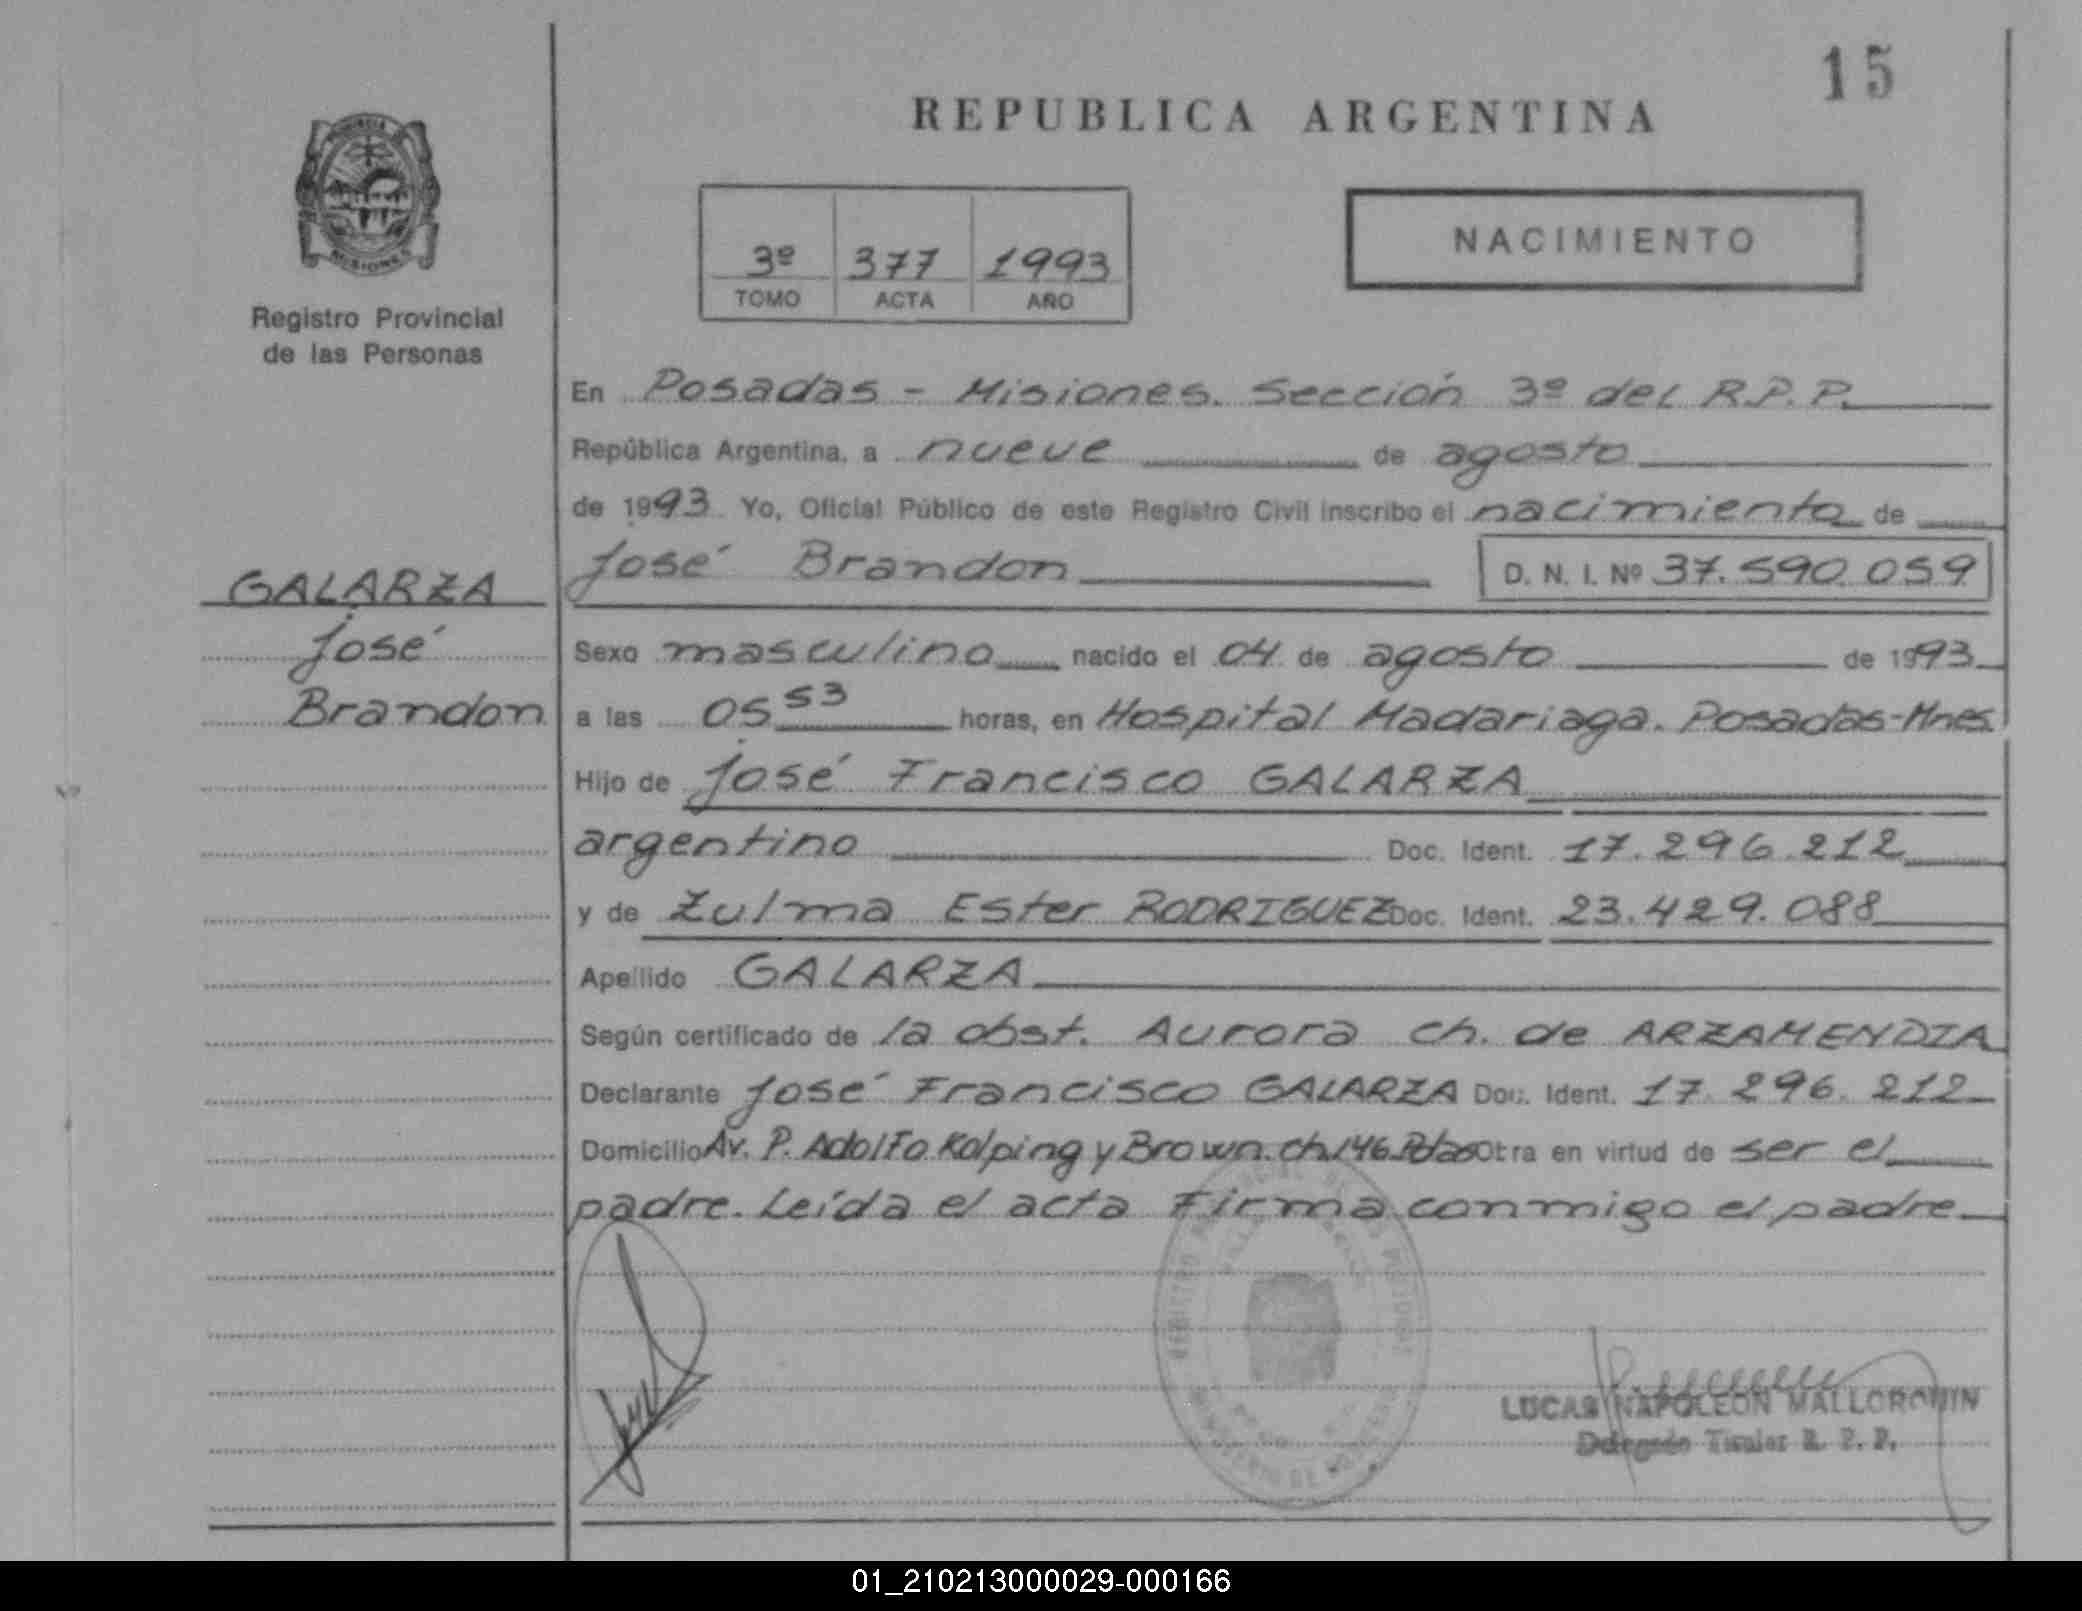 15
REPUBLICA ARGENTINA
PROVINCIA
MISIONES
Registro Provincial
de las Personas
3º 377 1993
TOMO ACTA AÑO
NACIMIENTO
En Posadas - Misiones. Sección 3º del R.P.P.
República Argentina, a nueve de agosto
de 1993 Yo, Oficial Público de este Registro Civil inscribo el nacimiento de
José Brandon D. N. I. Nº 37.590.059
GALARZA
José
Brandon
Sexo masculino nacido el 04 de agosto de 1993
a las 05 53 horas, en Hospital Madariaga. Posadas-Mnes.
Hijo de José Francisco GALARZA
argentino Doc. Ident. 17.296.212
y de Zulma Ester RODRIGUEZ Doc. Ident. 23.429.088
Apellido GALARZA
Según certificado de la obst. Aurora Ch. de ARZAMENDIA
Declarante José Francisco GALARZA Doc. Ident. 17.296.212
Domicilio Av. P. Adolfo Kolping y Brown. Ch. 146. Pdas Otra en virtud de ser el
padre. Leída el acta Firma conmigo el padre
LUCAS NAPOLEON MALLORQUIN
Delegado Titular R. P. P.
01_210213000029-000166